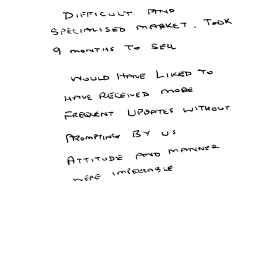 DIFFICULT AND
SPECIALISED MARKET. TOOK
9 MONTHS TO SELL
WOULD HAVE LIKED TO
HAVE RECEIVED MORE
FREQUENT UPDATES WITHOUT
PROMPTING BY US
ATTITUDE AND MANNER
WERE IMPECCABLE